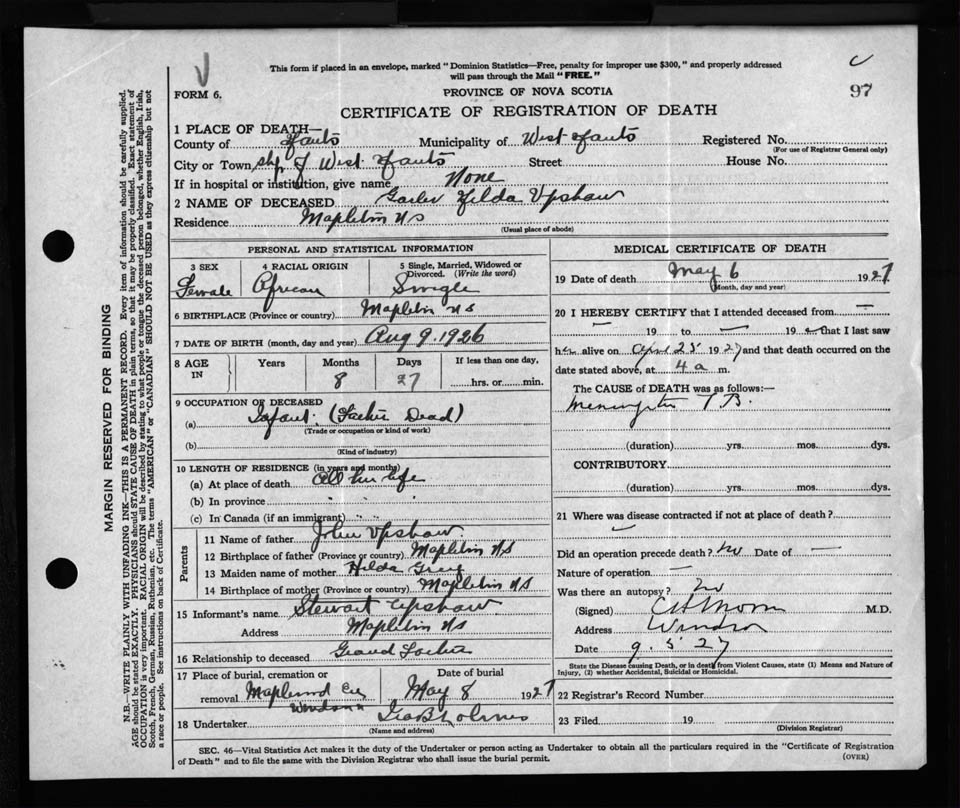 This form if placed in an envelope, marked "Dominion Statistics—Free, penalty for improper use $300," and properly addressed
will pass through the Mail "FREE."
FORM 6.
PROVINCE OF NOVA SCOTIA
97
CERTIFICATE OF REGISTRATION OF DEATH
1 PLACE OF DEATH—
County of Hants Municipality of West Hants Registered No.
(For use of Registrar General only)
City or Town of West Hants Street House No.
If in hospital or institution, give name None
2 NAME OF DECEASED Hilda Upshaw
Residence Mapleton NS
(Usual place of abode)
PERSONAL AND STATISTICAL INFORMATION
3 SEX 4 RACIAL ORIGIN 5 Single, Married, Widowed or Divorced. (Write the word)
Female African Single
6 BIRTHPLACE (Province or country) Mapleton NS
7 DATE OF BIRTH (month, day and year) Aug 9. 1926
8 AGE IN Years Months Days If less than one day,
8 27 hrs. or min.
9 OCCUPATION OF DECEASED
(a) Infant. (Father Dead)
(Trade or occupation or kind of work)
(b)
(Kind of industry)
10 LENGTH OF RESIDENCE (in years and months)
(a) At place of death All her life
(b) In province " " "
(c) In Canada (if an immigrant) " "
Parents
11 Name of father John Upshaw
12 Birthplace of father (Province or country) Mapleton NS
13 Maiden name of mother Hilda Grey
14 Birthplace of mother (Province or country) Mapleton NS
15 Informant's name Stewart Upshaw
Address Mapleton NS
16 Relationship to deceased Grand Father
17 Place of burial, cremation or removal Maplewood Windsor
Date of burial
May 8 1927
18 Undertaker Geo B Holmes
(Name and address)
MEDICAL CERTIFICATE OF DEATH
19 Date of death May 6 1927
(Month, day and year)
20 I HEREBY CERTIFY that I attended deceased from —
— 19 to — 19 — that I last saw
her alive on April 25 1927 and that death occurred on the
date stated above, at 4 a m.
The CAUSE of DEATH was as follows:—
Meningitis T B.
(duration) yrs. mos. dys.
CONTRIBUTORY
(duration) yrs. mos. dys.
21 Where was disease contracted if not at place of death?
Did an operation precede death? no Date of —
Nature of operation —
Was there an autopsy? no
(Signed) M.D.
Address Windsor
Date 9. 5' 27
State the Disease causing Death, or in death from Violent Causes, state (1) Means and Nature of
Injury, (2) whether Accidental, Suicidal or Homicidal.
22 Registrar's Record Number
23 Filed 19
(Division Registrar)
SEC. 46—Vital Statistics Act makes it the duty of the Undertaker or person acting as Undertaker to obtain all the particulars required in the "Certificate of Registration
of Death" and to file the same with the Division Registrar who shall issue the burial permit.
(OVER)
MARGIN RESERVED FOR BINDING
N.B.—WRITE PLAINLY WITH UNFADING INK—THIS IS A PERMANENT RECORD. Every item of information should be carefully supplied.
AGE should be stated EXACTLY. PHYSICIANS should STATE CAUSE OF DEATH in plain terms, so that it may be properly classified. Exact statement of
OCCUPATION is very important. RACIAL ORIGIN will be described by stating to what people or tongue the deceased person belonged, whether English, Irish,
Scotch, French, German, Russian, Ruthenian, etc. The terms "AMERICAN" or "CANADIAN" SHOULD NOT BE USED as they express citizenship but not
a race or people. See instructions on back of Certificate.